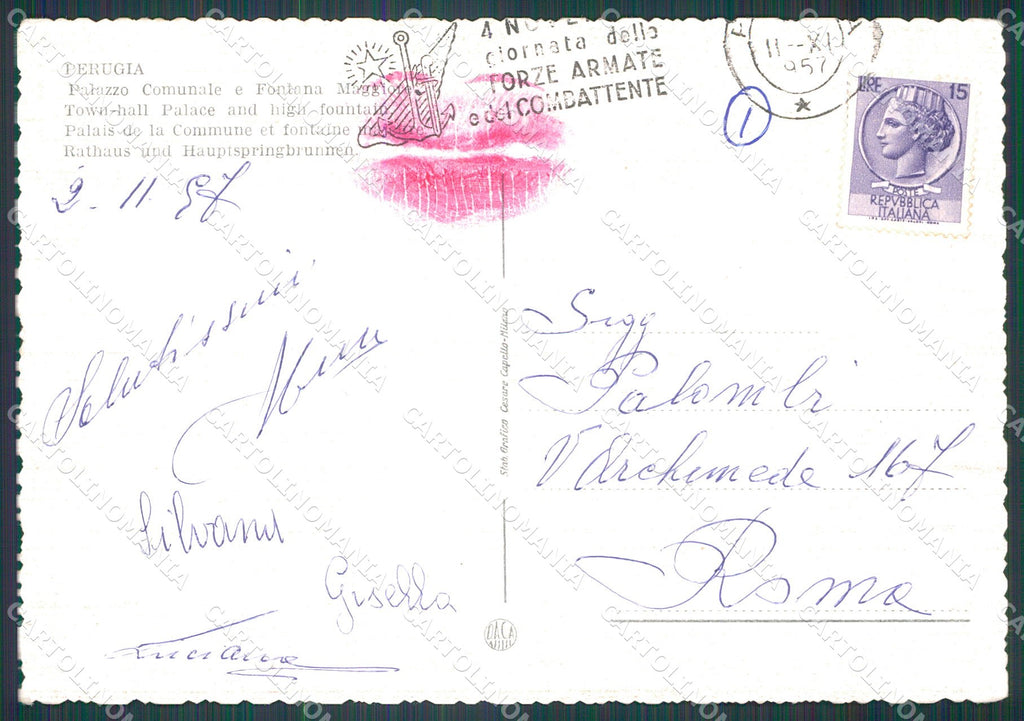 PERUGIA
Palazzo Comunale e Fontana Maggiore
Town-hall Palace and high fountain
Palais de la Commune et fontaine
Rathaus und Hauptspringbrunnen
2. 11. 57
Salutissimi
Silvana
Gisella
Luciana
4 NOVE
giornata delle
FORZE ARMATE
e del COMBATTENTE
11--XI
1957
1
LIRE 15
POSTE
REPVBBLICA
ITALIANA
Stab. Grafico Cesare Capello-Milano
Sigg
Palombi
V Archimede 167
Roma
DACA
CARTOLINOMANIA